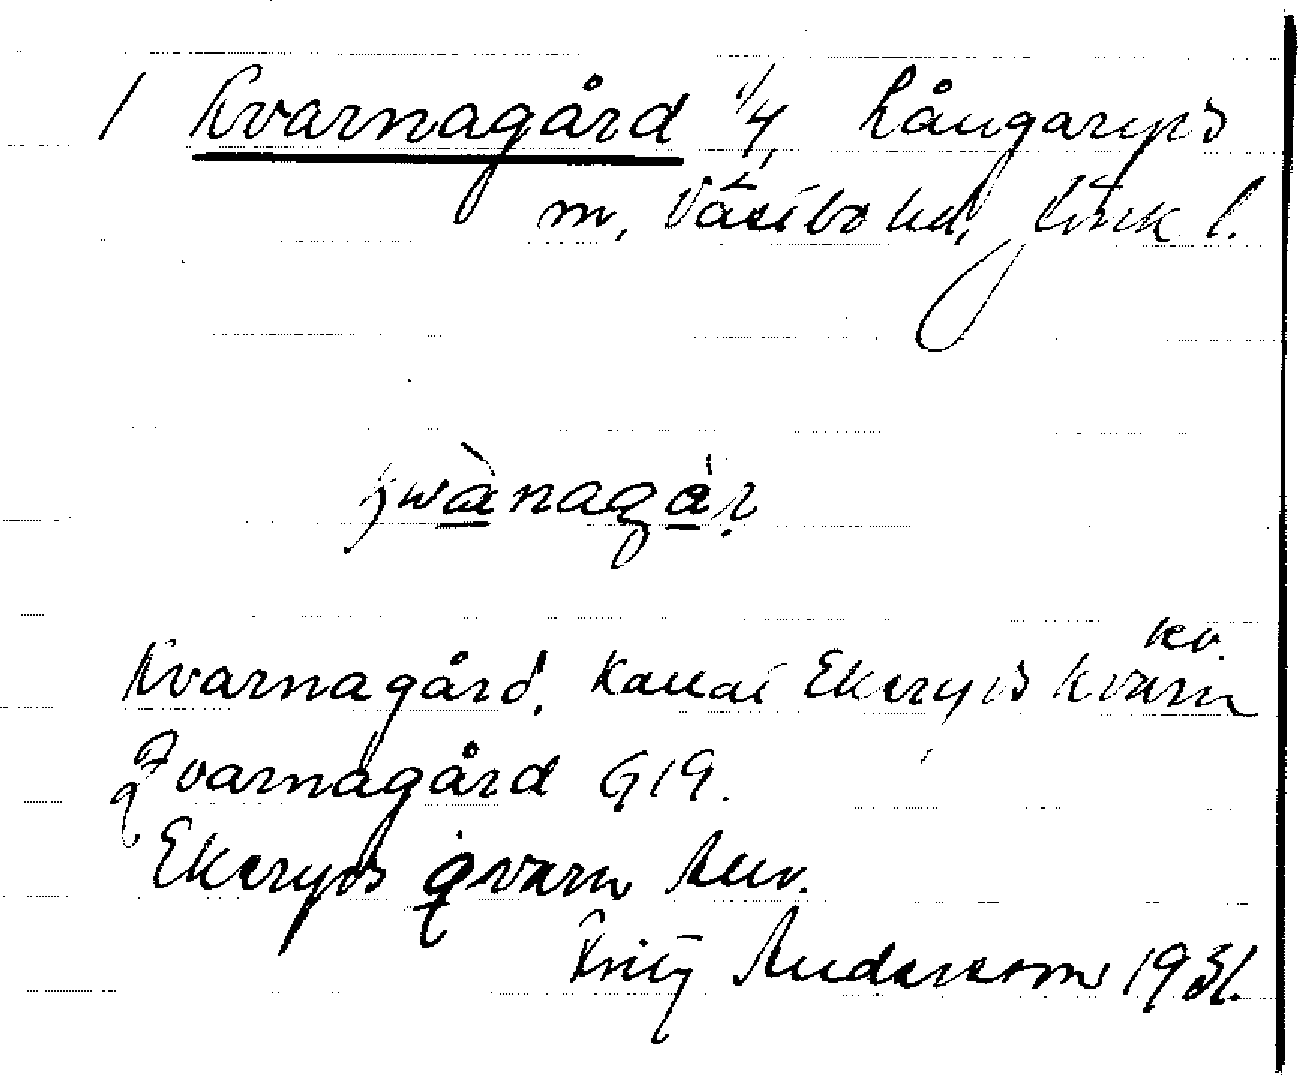 1 Kvarnagård 1/4 Rångaryds
m, Västbo hd, Jönk l.
kwànagár
kv.
Kvarnagård, kallat Ekeryds kvarn
Qvarnagård G19.
Ekeryds qvarn
Fritz Andersson 1931.